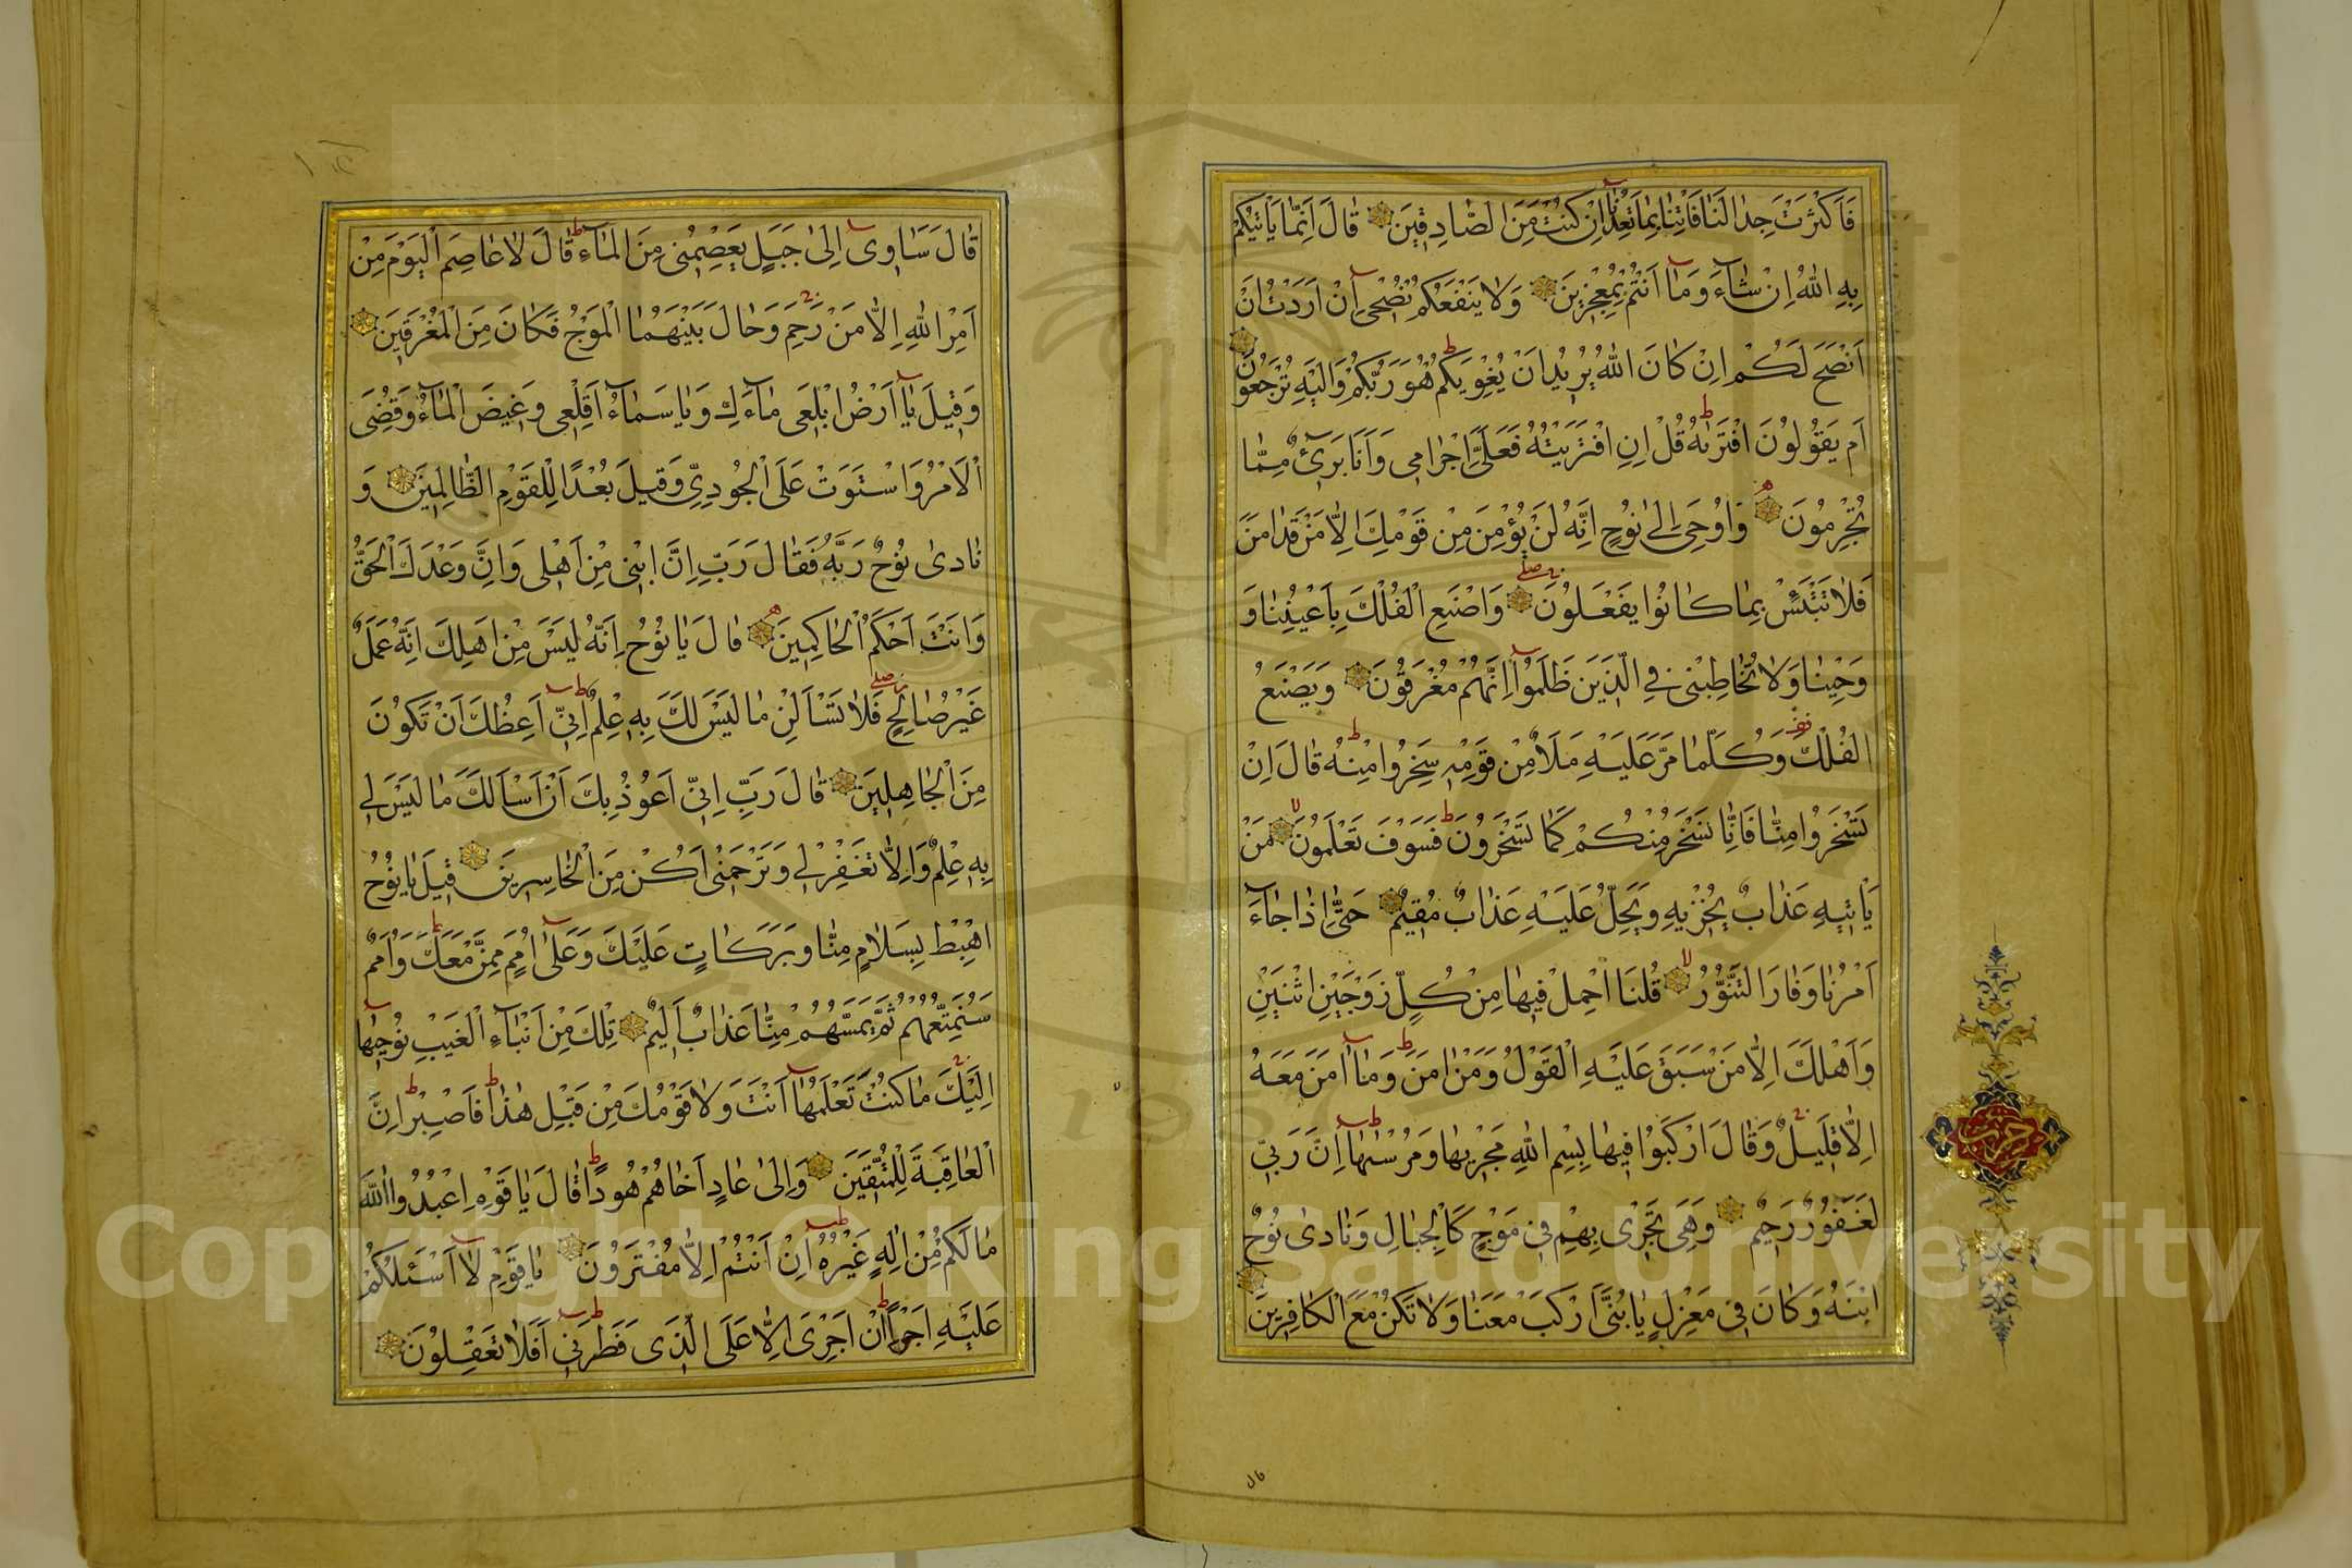 فَاَكْثَرْتَ جِدَالَنَا فَاْتِنَا بِمَا تَعِدُنَا اِنْ كُنْتَ مِنَ الصَّادِقِينَ قَالَ اِنَّمَا يَاْتِيكُمْ
بِهِ اللهُ اِنْ شَاءَ وَمَا اَنْتُمْ بِمُعْجِزِينَ وَلَا يَنْفَعُكُمْ نُصْحِى اِنْ اَرَدْتُ اَنْ
اَنْصَحَ لَكُمْ اِنْ كَانَ اللهُ يُرِيدُ اَنْ يُغْوِيَكُمْ هُوَ رَبُّكُمْ وَاِلَيْهِ تُرْجَعُونَ
اَمْ يَقُولُونَ افْتَرَيٰهُ قُلْ اِنِ افْتَرَيْتُهُ فَعَلَىَّ اِجْرَامِى وَاَنَا بَرِىءٌ مِمَّا
تُجْرِمُونَ وَاُوحِىَ اِلَىٰ نُوحٍ اَنَّهُ لَنْ يُؤْمِنَ مِنْ قَوْمِكَ اِلَّا مَنْ قَدْ اٰمَنَ
فَلَا تَبْتَئِسْ بِمَا كَانُوا يَفْعَلُونَ وَاصْنَعِ الْفُلْكَ بِاَعْيُنِنَا وَ
وَحْيِنَا وَلَا تُخَاطِبْنِى فِى الَّذِينَ ظَلَمُوا اِنَّهُمْ مُغْرَقُونَ وَيَصْنَعُ
الْفُلْكَ وَكُلَّمَا مَرَّ عَلَيْهِ مَلَاٌ مِنْ قَوْمِهِ سَخِرُوا مِنْهُ قَالَ اِنْ
تَسْخَرُوا مِنَّا فَاِنَّا نَسْخَرُ مِنْكُمْ كَمَا تَسْخَرُونَ فَسَوْفَ تَعْلَمُونَ مَنْ
يَاْتِيهِ عَذَابٌ يُخْزِيهِ وَيَحِلُّ عَلَيْهِ عَذَابٌ مُقِيمٌ حَتَّى اِذَا جَاءَ
اَمْرُنَا وَفَارَ التَّنُّورُ قُلْنَا احْمِلْ فِيهَا مِنْ كُلٍّ زَوْجَيْنِ اثْنَيْنِ
وَاَهْلَكَ اِلَّا مَنْ سَبَقَ عَلَيْهِ الْقَوْلُ وَمَنْ اٰمَنَ وَمَا اٰمَنَ مَعَهُ
اِلَّا قَلِيلٌ وَقَالَ ارْكَبُوا فِيهَا بِسْمِ اللهِ مَجْرٰيهَا وَمُرْسٰيهَا اِنَّ رَبِّى
لَغَفُورٌ رَحِيمٌ وَهِىَ تَجْرِى بِهِمْ فِى مَوْجٍ كَالْجِبَالِ وَنَادَىٰ نُوحٌ
ابْنَهُ وَكَانَ فِى مَعْزِلٍ يَا بُنَىَّ ارْكَبْ مَعَنَا وَلَا تَكُنْ مَعَ الْكَافِرِينَ
حزب
قَالَ سَاٰوِى اِلَىٰ جَبَلٍ يَعْصِمُنِى مِنَ الْمَاءِ قَالَ لَا عَاصِمَ الْيَوْمَ مِنْ
اَمْرِ اللهِ اِلَّا مَنْ رَحِمَ وَحَالَ بَيْنَهُمَا الْمَوْجُ فَكَانَ مِنَ الْمُغْرَقِينَ
وَقِيلَ يَا اَرْضُ ابْلَعِى مَاءَكِ وَيَا سَمَاءُ اَقْلِعِى وَغِيضَ الْمَاءُ وَقُضِىَ
الْاَمْرُ وَاسْتَوَتْ عَلَى الْجُودِىِّ وَقِيلَ بُعْدًا لِلْقَوْمِ الظَّالِمِينَ وَ
نَادَىٰ نُوحٌ رَبَّهُ فَقَالَ رَبِّ اِنَّ ابْنِى مِنْ اَهْلِى وَاِنَّ وَعْدَكَ الْحَقُّ
وَاَنْتَ اَحْكَمُ الْحَاكِمِينَ قَالَ يَا نُوحُ اِنَّهُ لَيْسَ مِنْ اَهْلِكَ اِنَّهُ عَمَلٌ
غَيْرُ صَالِحٍ فَلَا تَسْاَلْنِ مَا لَيْسَ لَكَ بِهِ عِلْمٌ اِنِّى اَعِظُكَ اَنْ تَكُونَ
مِنَ الْجَاهِلِينَ قَالَ رَبِّ اِنِّى اَعُوذُ بِكَ اَنْ اَسْاَلَكَ مَا لَيْسَ لِى
بِهِ عِلْمٌ وَاِلَّا تَغْفِرْ لِى وَتَرْحَمْنِى اَكُنْ مِنَ الْخَاسِرِينَ قِيلَ يَا نُوحُ
اهْبِطْ بِسَلَامٍ مِنَّا وَبَرَكَاتٍ عَلَيْكَ وَعَلَىٰ اُمَمٍ مِمَّنْ مَعَكَ وَاُمَمٌ
سَنُمَتِّعُهُمْ ثُمَّ يَمَسُّهُمْ مِنَّا عَذَابٌ اَلِيمٌ تِلْكَ مِنْ اَنْبَاءِ الْغَيْبِ نُوحِيهَا
اِلَيْكَ مَا كُنْتَ تَعْلَمُهَا اَنْتَ وَلَا قَوْمُكَ مِنْ قَبْلِ هٰذَا فَاصْبِرْ اِنَّ
الْعَاقِبَةَ لِلْمُتَّقِينَ وَاِلَىٰ عَادٍ اَخَاهُمْ هُودًا قَالَ يَا قَوْمِ اعْبُدُوا اللهَ
مَا لَكُمْ مِنْ اِلٰهٍ غَيْرُهُ اِنْ اَنْتُمْ اِلَّا مُفْتَرُونَ يَا قَوْمِ لَا اَسْئَلُكُمْ
عَلَيْهِ اَجْرًا اِنْ اَجْرِىَ اِلَّا عَلَى الَّذِى فَطَرَنِى اَفَلَا تَعْقِلُونَ
Copyright © King Saud University